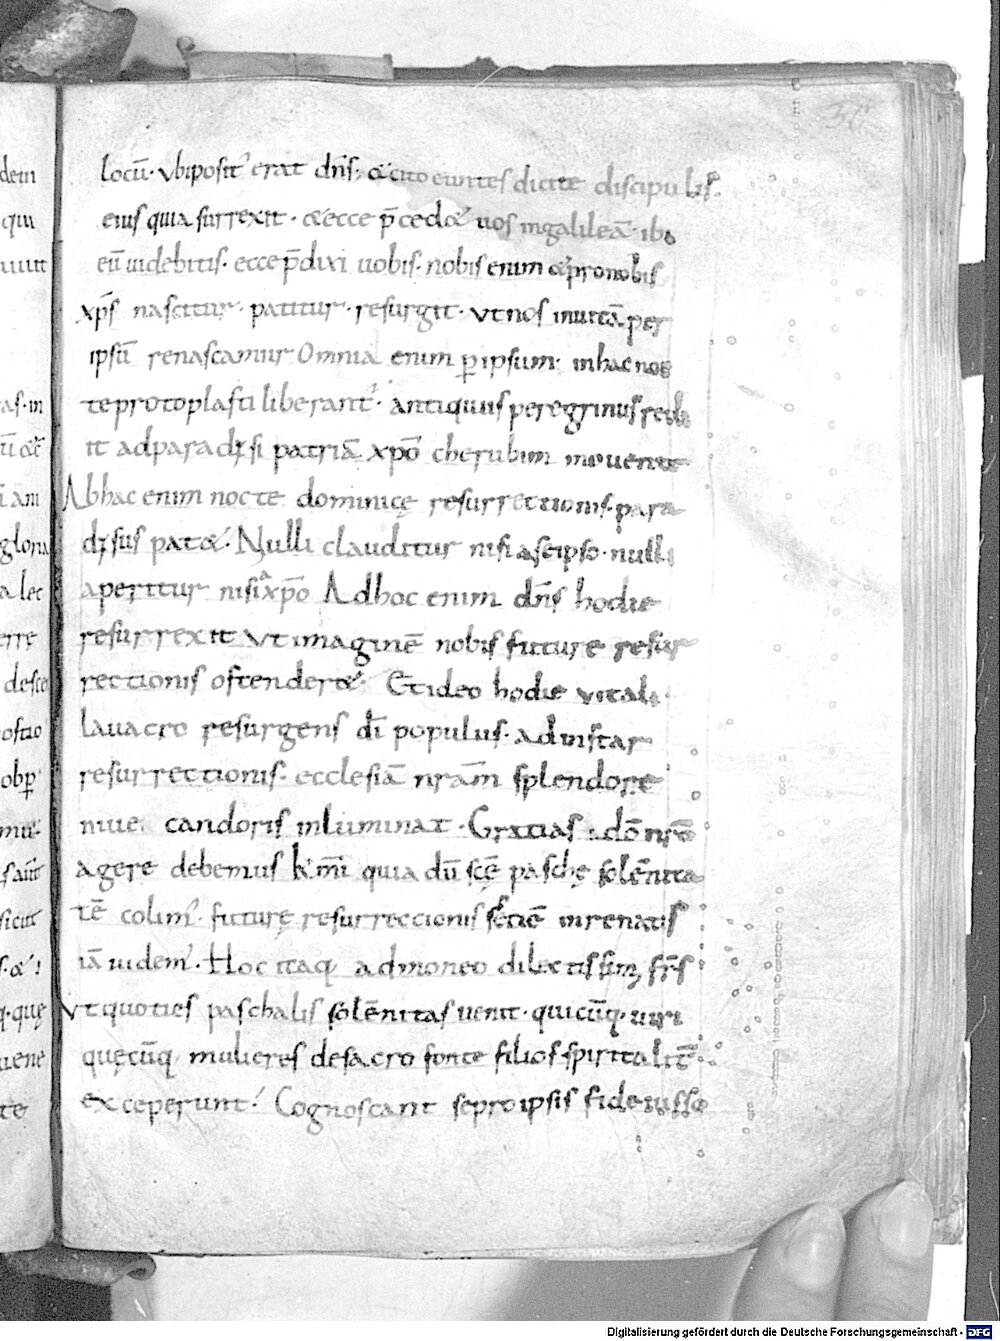 locū· ubi posit' erat dn̄s· & cito euntes dicite discipulis
eius quia surrexit· & ecce p̄ced& uos in galileā· ibi
eū uidebitis· ecce p̄dixi uobis· nobis enim & pro nobis
xp̄s nascitur· patitur· resurgit· ut nos in uitā per
ipsū renascamur Omnia enim ꝑ ipsum· in hac nocte
te protoplasti liberant'· antiquus peregrinus redi
it ad paradẏsi patriā xp̄o cherubim mouente
Ab hac enim nocte dominicę resurrectionis· para
dẏsus pat&· Nulli clauditur nisi a seipso· nulli
aperitur nisi a xp̄o Ad hoc enim dn̄s hodie
resurrexit ut imaginē nobis future resur
rectionis ostender&· Et ideo hodie uitali
lauacro resurgens dī populus· ad instar
resurrectionis· ecclesiā nr̄am splendore
niue candoris inluminat· Gratias dō nr̄o
agere debemus kr̄mi quia dū scē paschę solēnita
tē colim'· futurę resurreccionis in renatis
iā uidem'· Hoc itaq· admoneo dilectissimi fr̄s
ut quoties paschalis solēnitas uenit· quicūq· uiri
quęcūq· mulieres de sacro fonte filios spiritalit̄
exceperunt· Cognoscant se pro ipsis fideiusso